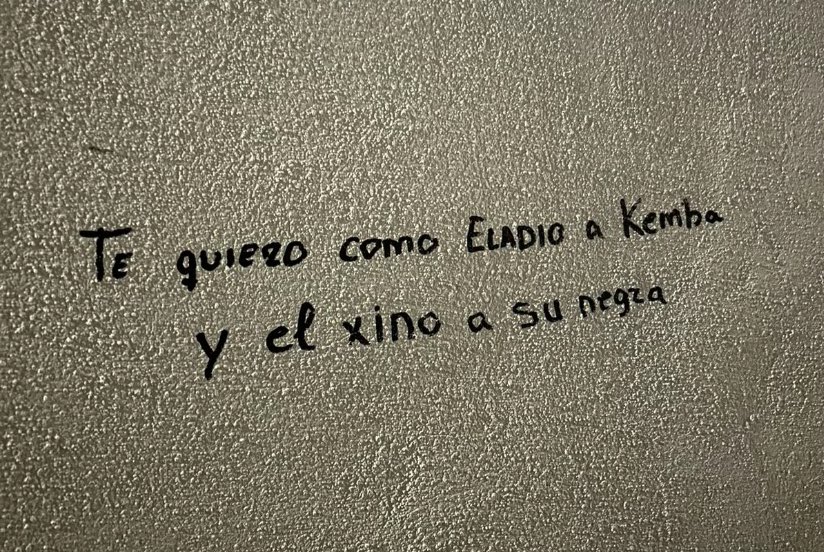 TE quiero como ELADIO a Kemba
y el xino a su negra